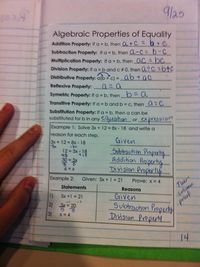 9/25
Algebraic Properties of Equality
Addition Property: If a = b, then a + c = b + c
Subtraction Property: If a = b, then a - c = b - c
Multiplication Property: If a = b, then ac = bc
Division Property: If a = b and c ≠ 0, then a ÷ c = b ÷ c
Distributive Property: ab + ac
Reflexive Property: a = a
Symmetric Property: If a = b, then b = a
Transitive Property: If a = b and b = c, then a = c
Substitution Property: If a = b, then a can be
substituted for b in any equation or expression
Example 1: Solve 3x + 12 = 8x - 18 and write a
reason for each step.
3x + 12 = 8x - 18 Given
12 = 5x - 18 Subtraction Property
30 = 5x Addition Property
6 = x Division Property
Example 2: Given: 3x + 1 = 21 Prove: x = 4
Statements Reasons
1) 5x + 1 = 21 Given
2) Subtraction Property
3) x = 4 Division Property
14